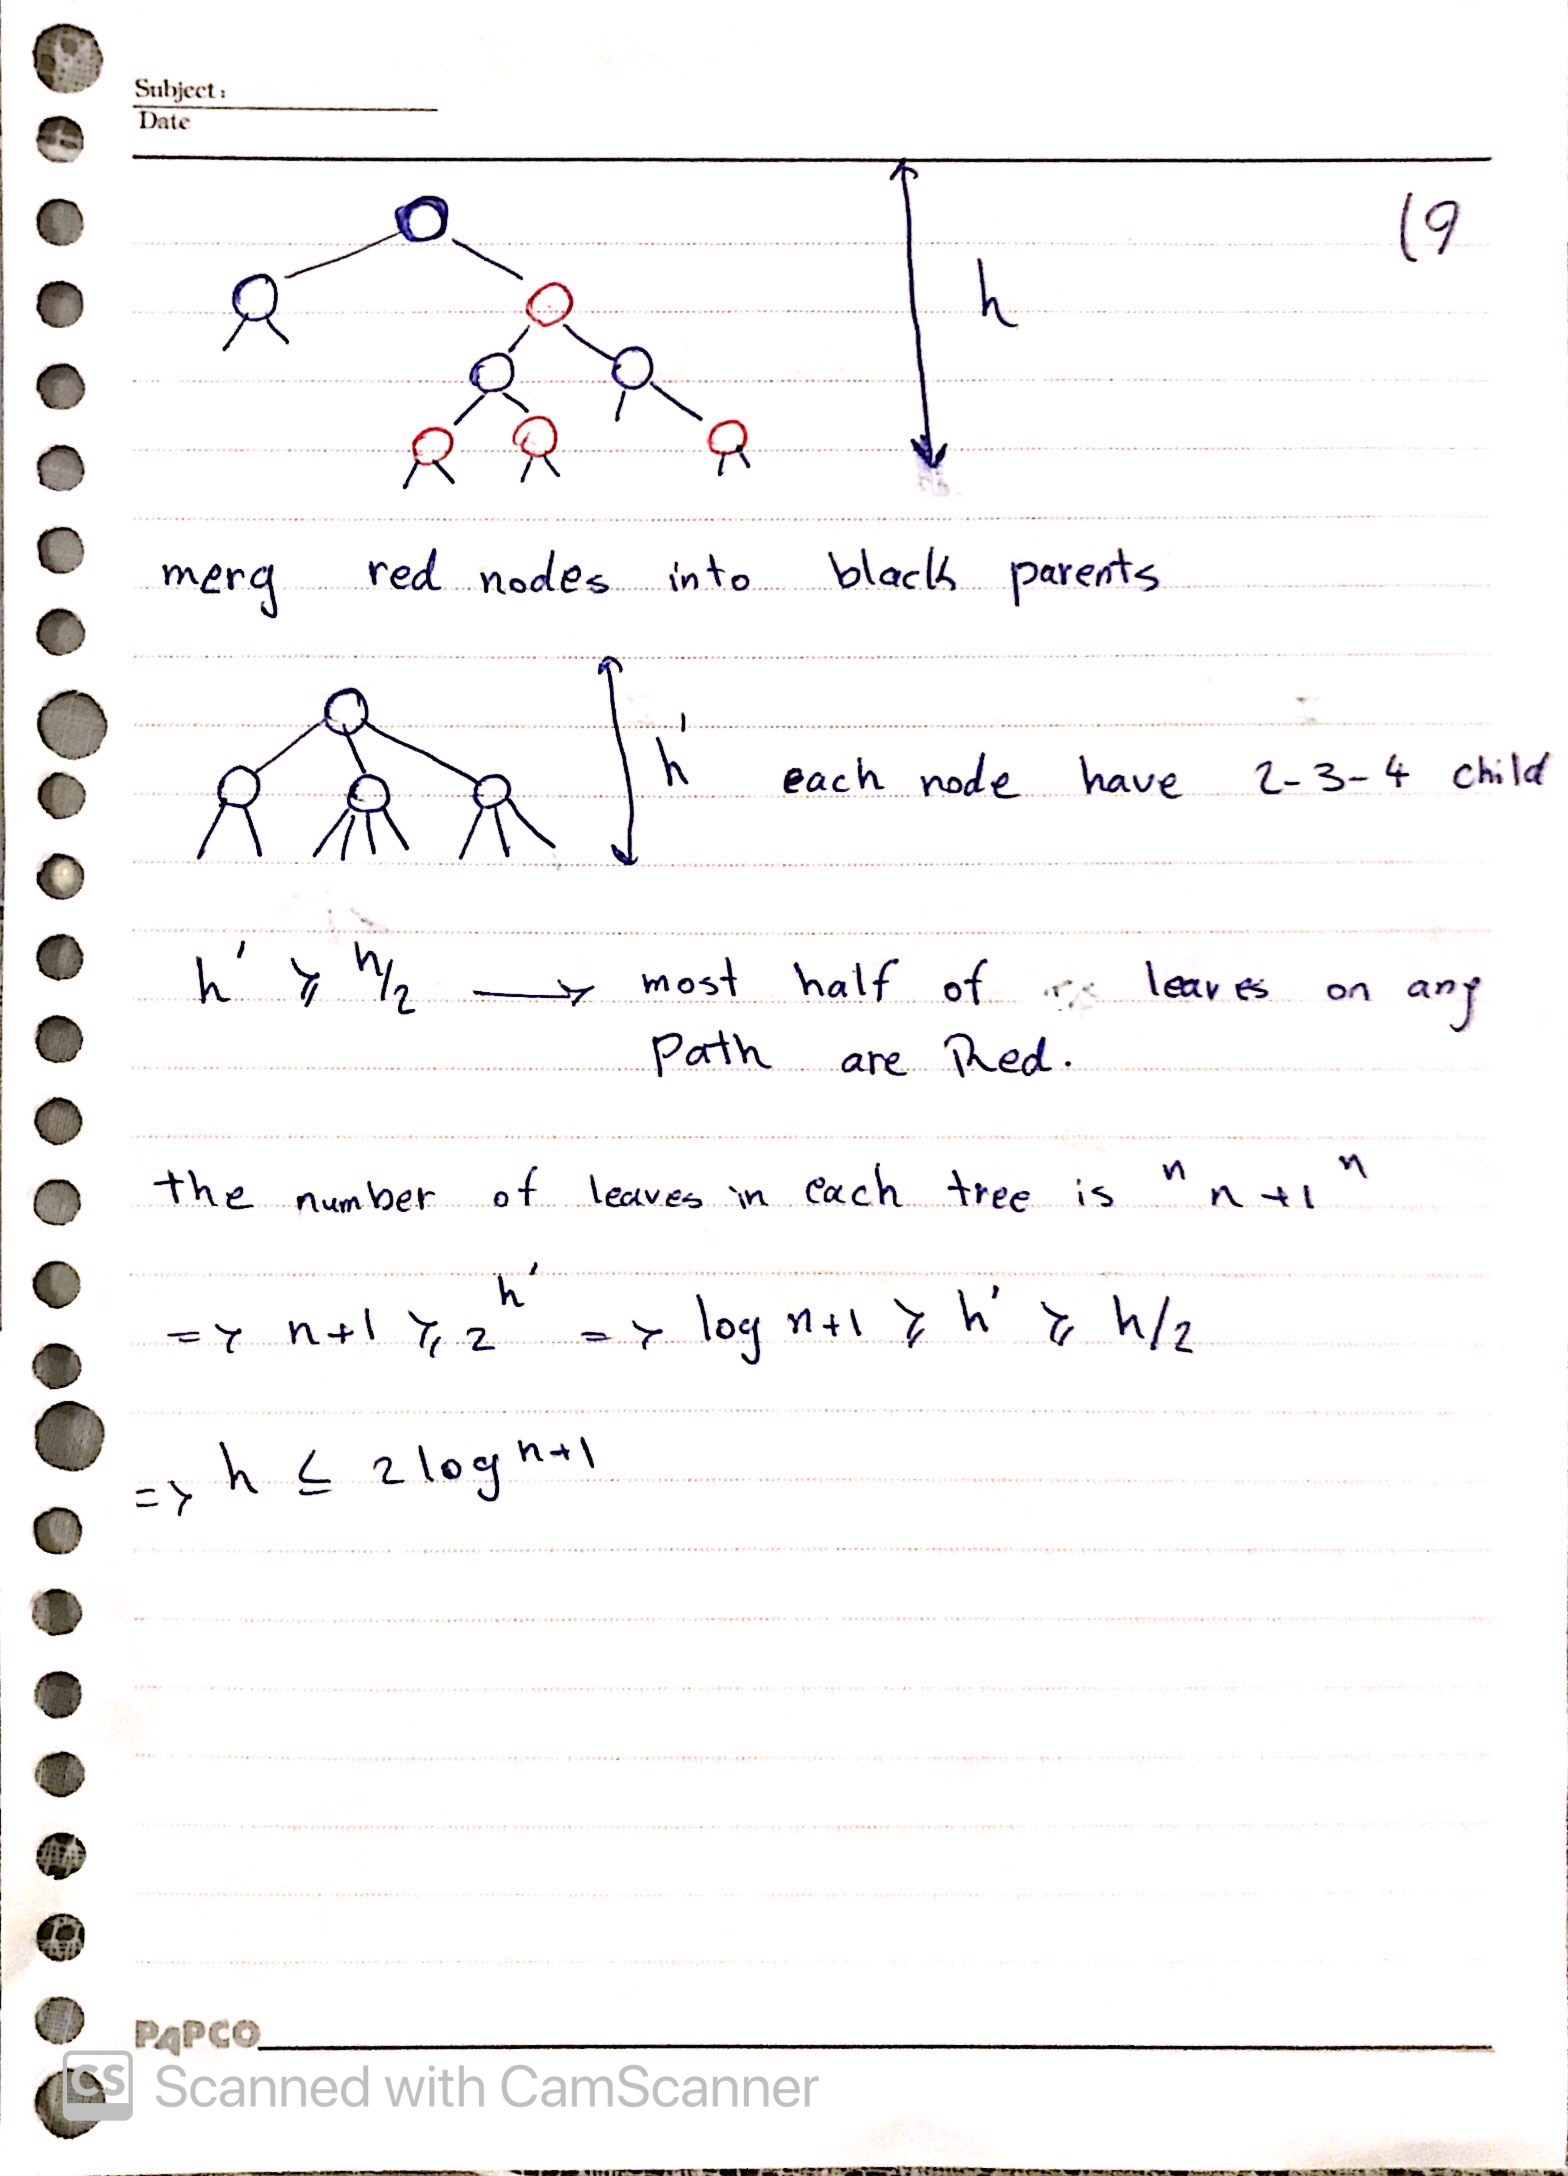 Subject:
Date
(9
h
merg red nodes into black parents
h' each node have 2-3-4 child
h' ≥ h/2 → most half of leaves on any
Path are Red.
the number of leaves in each tree is "n+1"
=> n+1 ≥ 2^h' => log n+1 ≥ h' ≥ h/2
=> h ≤ 2 log n+1
PAPCO
CS Scanned with CamScanner